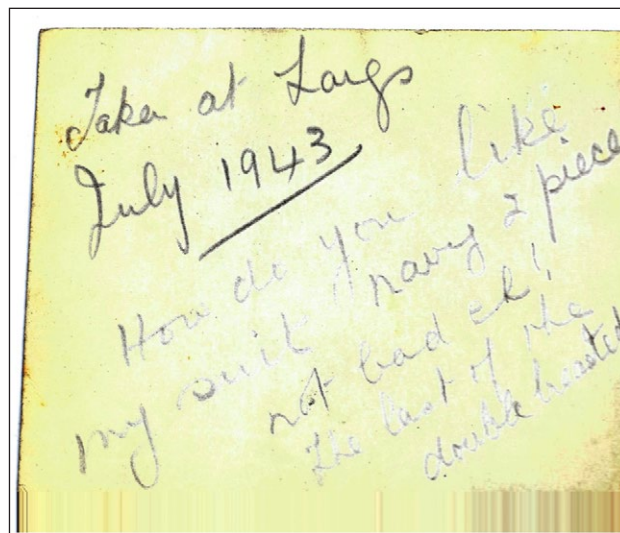 Taken at Largs
July 1943
How do you like
my suit navy 2 piece
not bad eh!
The last of the
double breasted